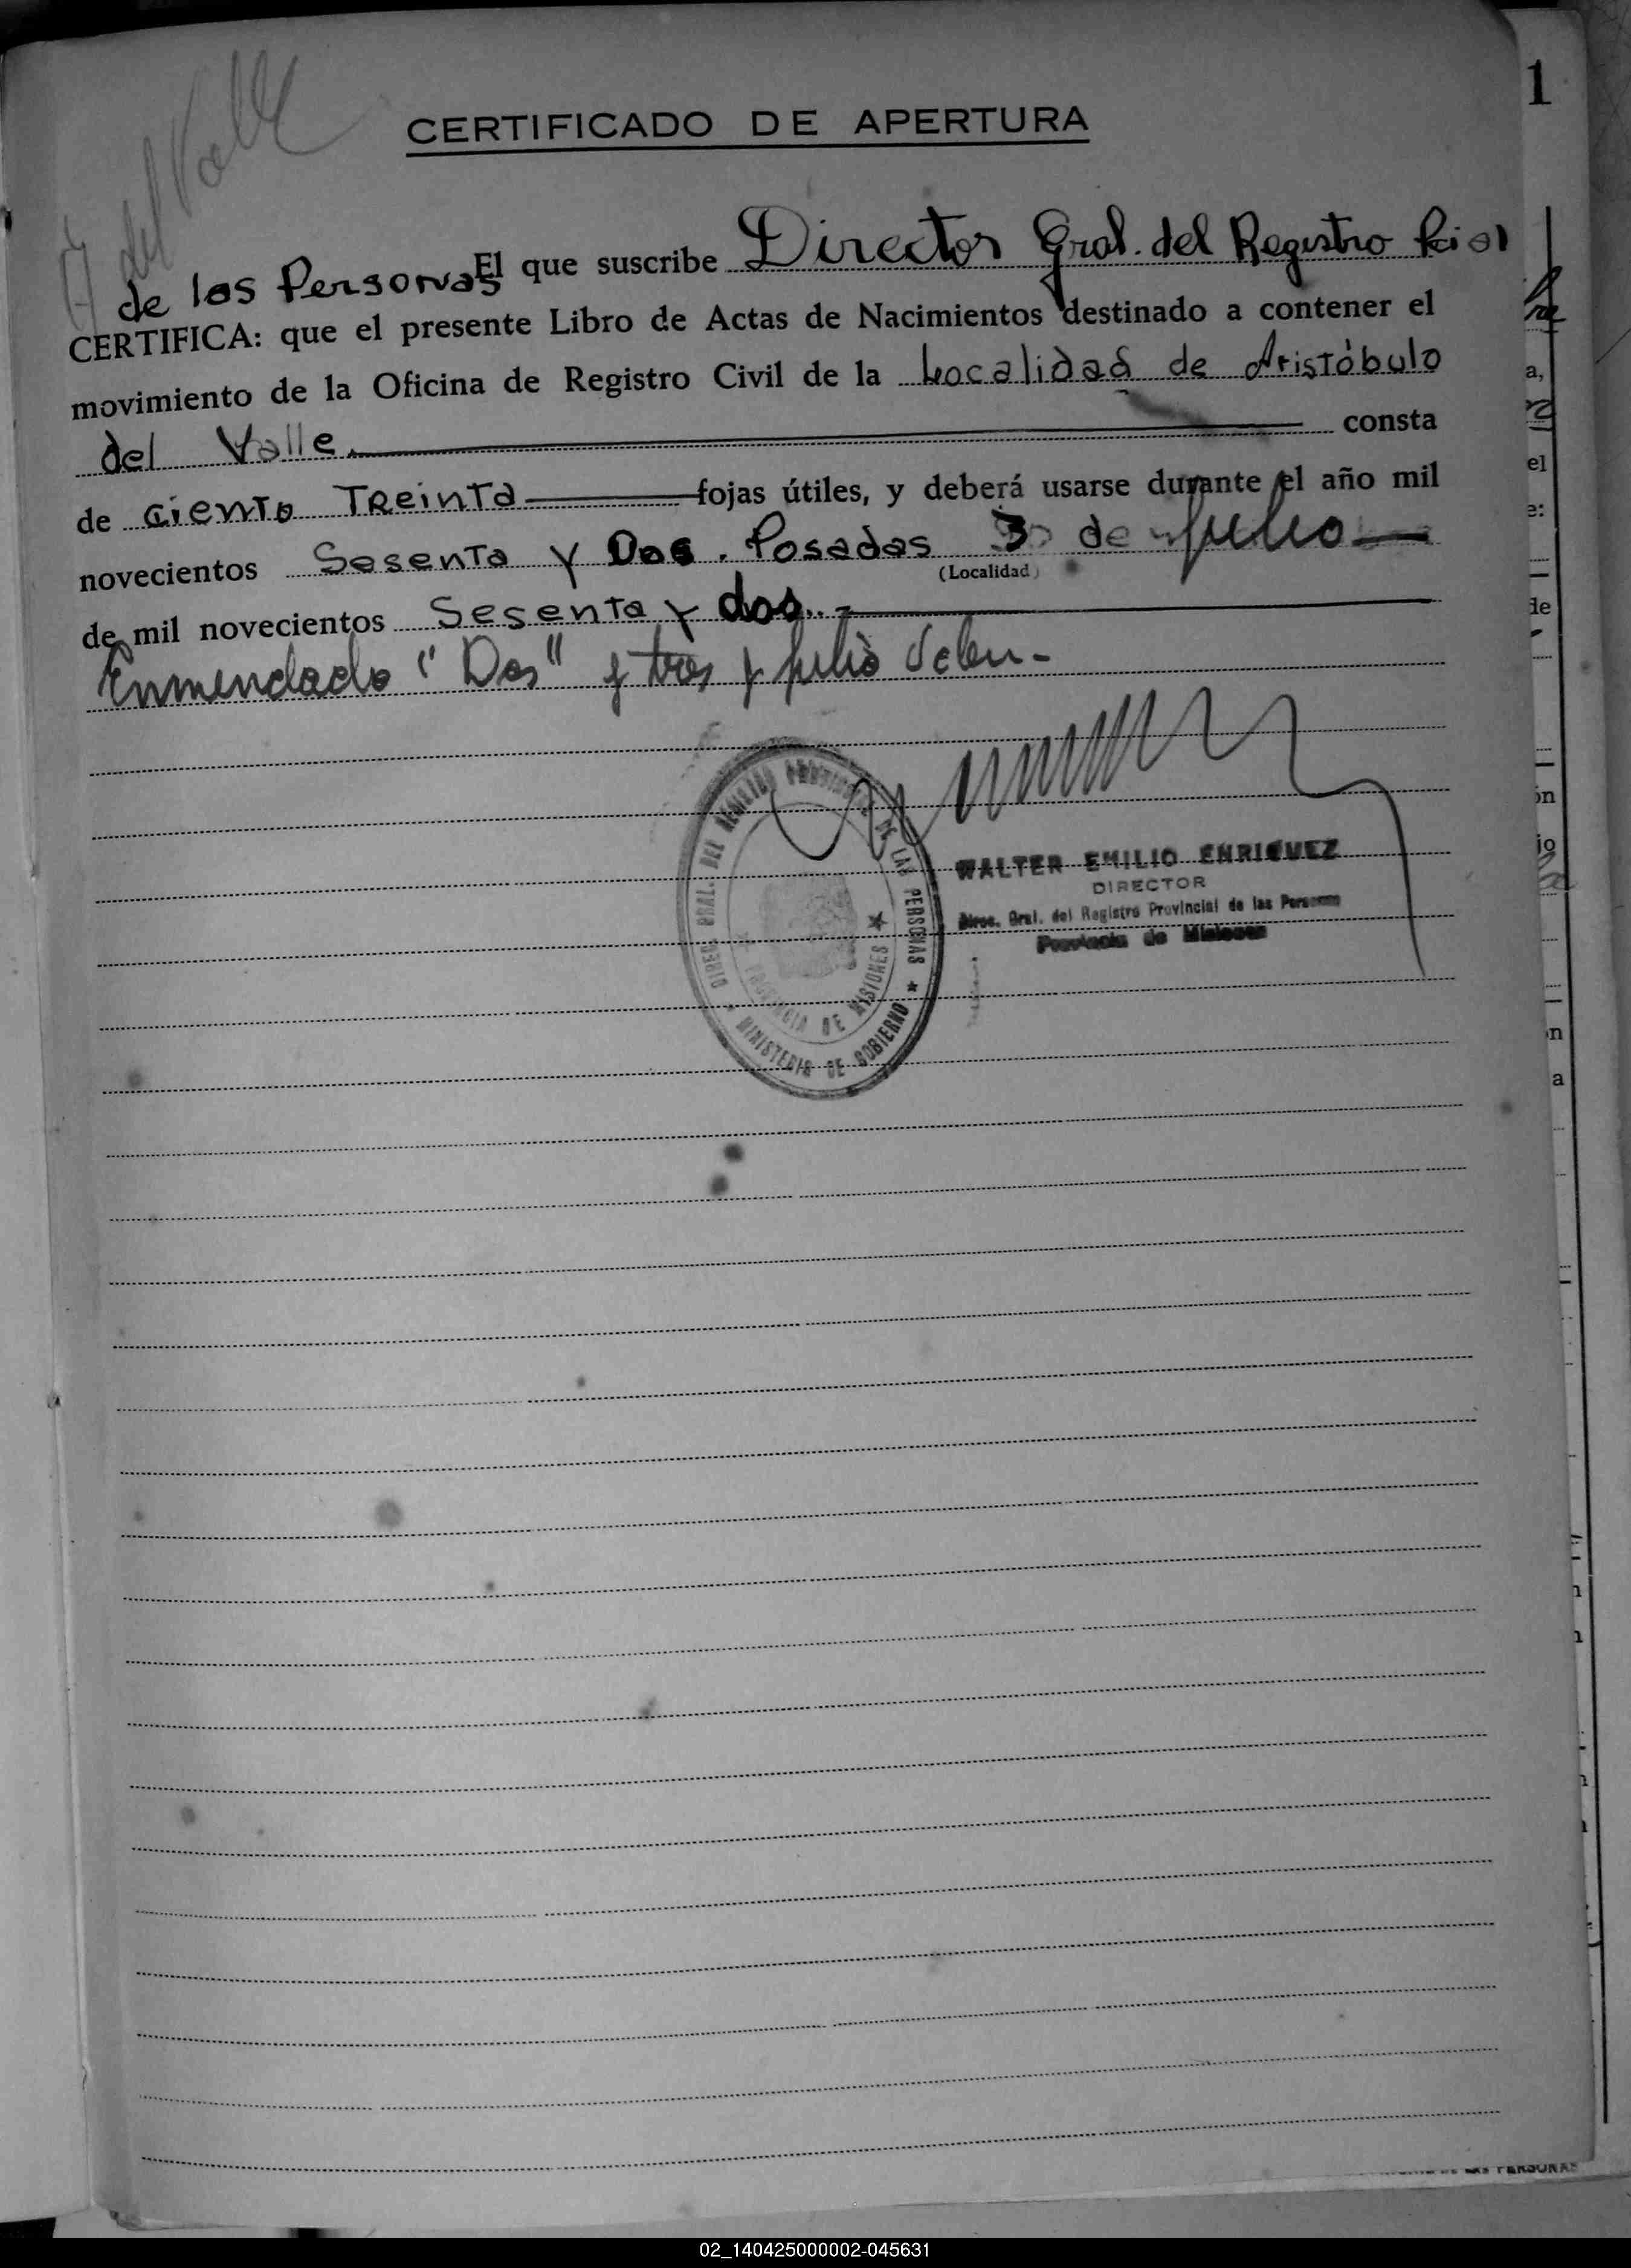 A del Valle
1
CERTIFICADO DE APERTURA
El que suscribe Director Gral. del Registro Pcial
de las Personas
CERTIFICA: que el presente Libro de Actas de Nacimientos destinado a contener el
movimiento de la Oficina de Registro Civil de la Localidad de Aristóbulo
del Valle. consta
de ciento Treinta fojas útiles, y deberá usarse durante el año mil
novecientos Sesenta y Dos. Posadas 3 de Julio
(Localidad)
de mil novecientos Sesenta y dos..-
Enmendado "Dos" y tres y julio Valen.-
DIREC. GRAL. DEL REGISTRO PROVINCIAL DE LAS PERSONAS
PROVINCIA DE MISIONES
MINISTERIO DE GOBIERNO
WALTER EMILIO ENRIQUEZ
DIRECTOR
Direc. Gral. del Registro Provincial de las Personas
Provincia de Misiones
02_140425000002-045631